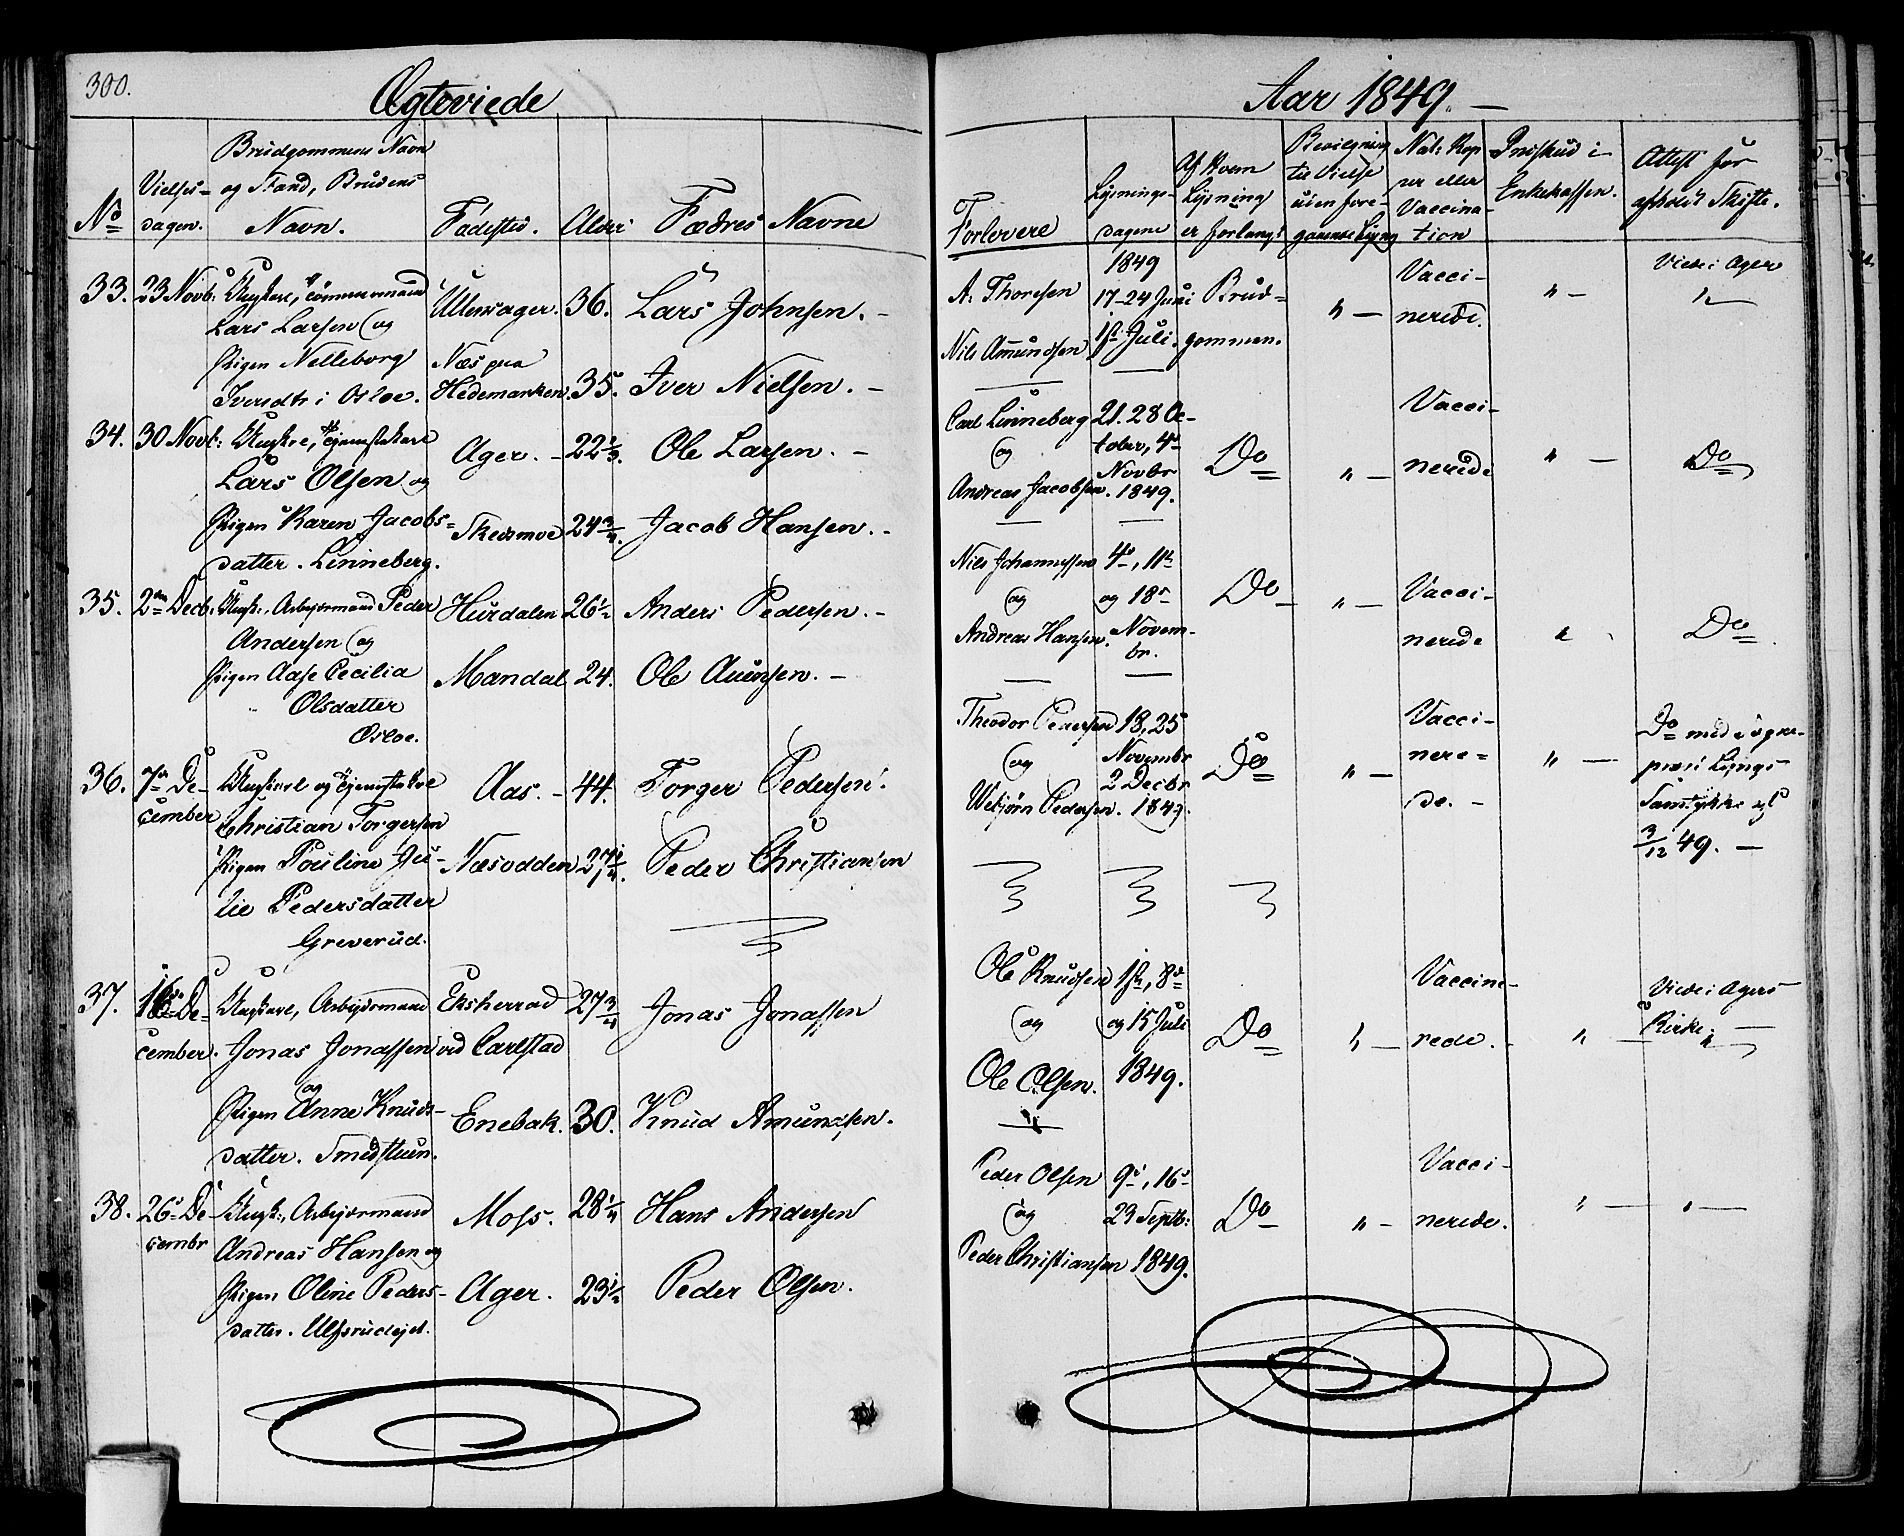 300.
Ægteviede
Aar 1849.
No
Vielses-
dagen.
Brudgommens Navn
og Stand, Brudens
Navn.
Fødested.
Alder
Fædres Navne
Forlovere
Lysnings-
dagene
Af Hvem
Lysning
er forlangt
Bevilgning
til Vielse
uden fore-
gaaende Lysng
Nat: Kop
per eller
Vaccina-
tion
Indskud i
Enkekassen.
Attest for
afholdt Skifte.
33. 23 Novb: Ungkarl, Tømmermand
Lars Larsen og
Pigen Nelleborg
Iversdtr i Osloe.
Ullensager. 36. Lars Johnsen.
Næs paa
Hedemarken. 35. Iver Nielsen.
A. Thoresen
Nils Amundsen
1849
17-24 Juni
1ste Juli.
Brud-
gommen.
" Vacci-
nerede.
"
Viede i Ager
"
34. 30 Novb: Ungkre,
Lars Olsen og
Pigen Karen Jacobs-
datter. Linneberg.
Ager. 22 Ole Larsen.
Skedsmoe 24 3/4. Jacob Hansen.
Carl Linneberg
og
Andreas Jacobsen.
21. 28 Oc-
tober, 4de
Novbr
1849.
Do
" Vacci-
nerede
"
Do
35. 2den Decb: Ungk:, Arbejdsmand Peder
Andersen og
Pigen Aase Cecilia
Olsdatter
Osloe.
Hurdalen 26 1/2 Anders Pedersen.
Mandal 24. Ole Auensen.
Nils Johannessen
og
Andreas Hansen.
4de, 11te
og 18de
Novem-
br.
Do
" Vacci-
nerede
"
Do
36. 7de De-
cember
Ungkarl og
Christian Torgersen
Pigen Pauline Ju-
lie Pedersdatter
Greverud.
Aas. 44. Torger Pedersen.
Næsodden 27 1/4. Peder Christiansen
Theodor Pedersen
og
Webjørn Pedersen.
18, 25
Novembr
2 Decbr
1849.
Do
" Vacci-
nere-
de.
"
Do med
Samtykke af
3/12 49.
37. 16de De-
cember.
Ungkarl, Arbejdsmand
Jonas Jonassen
og
Pigen Anne Knuds-
datter. Smedstuen.
Eksherrad
ved Carlstad
27 3/4 Jonas Jonassen
Enebak. 30. Knud Amundsen.
Ole Knudsen
og
Ole Olsen.
1ste, 8de
og 15 Juli
1849.
Do
" Vaccine-
rede.
"
Viede i Agers
Kirke.
"
38. 26de De-
cembr
Ungk:, Arbejdsmand
Andreas Hansen og
Pigen Oline Peders-
datter. Ulfsrudejet.
Moss. 28 1/4 Hans Andersen
Ager. 23 1/2 Peder Olsen.
Peder Olsen
og
Peder Christiansen
9de, 16de
23 Septb:
1849.
Do
" Vacci-
nerede.
" "